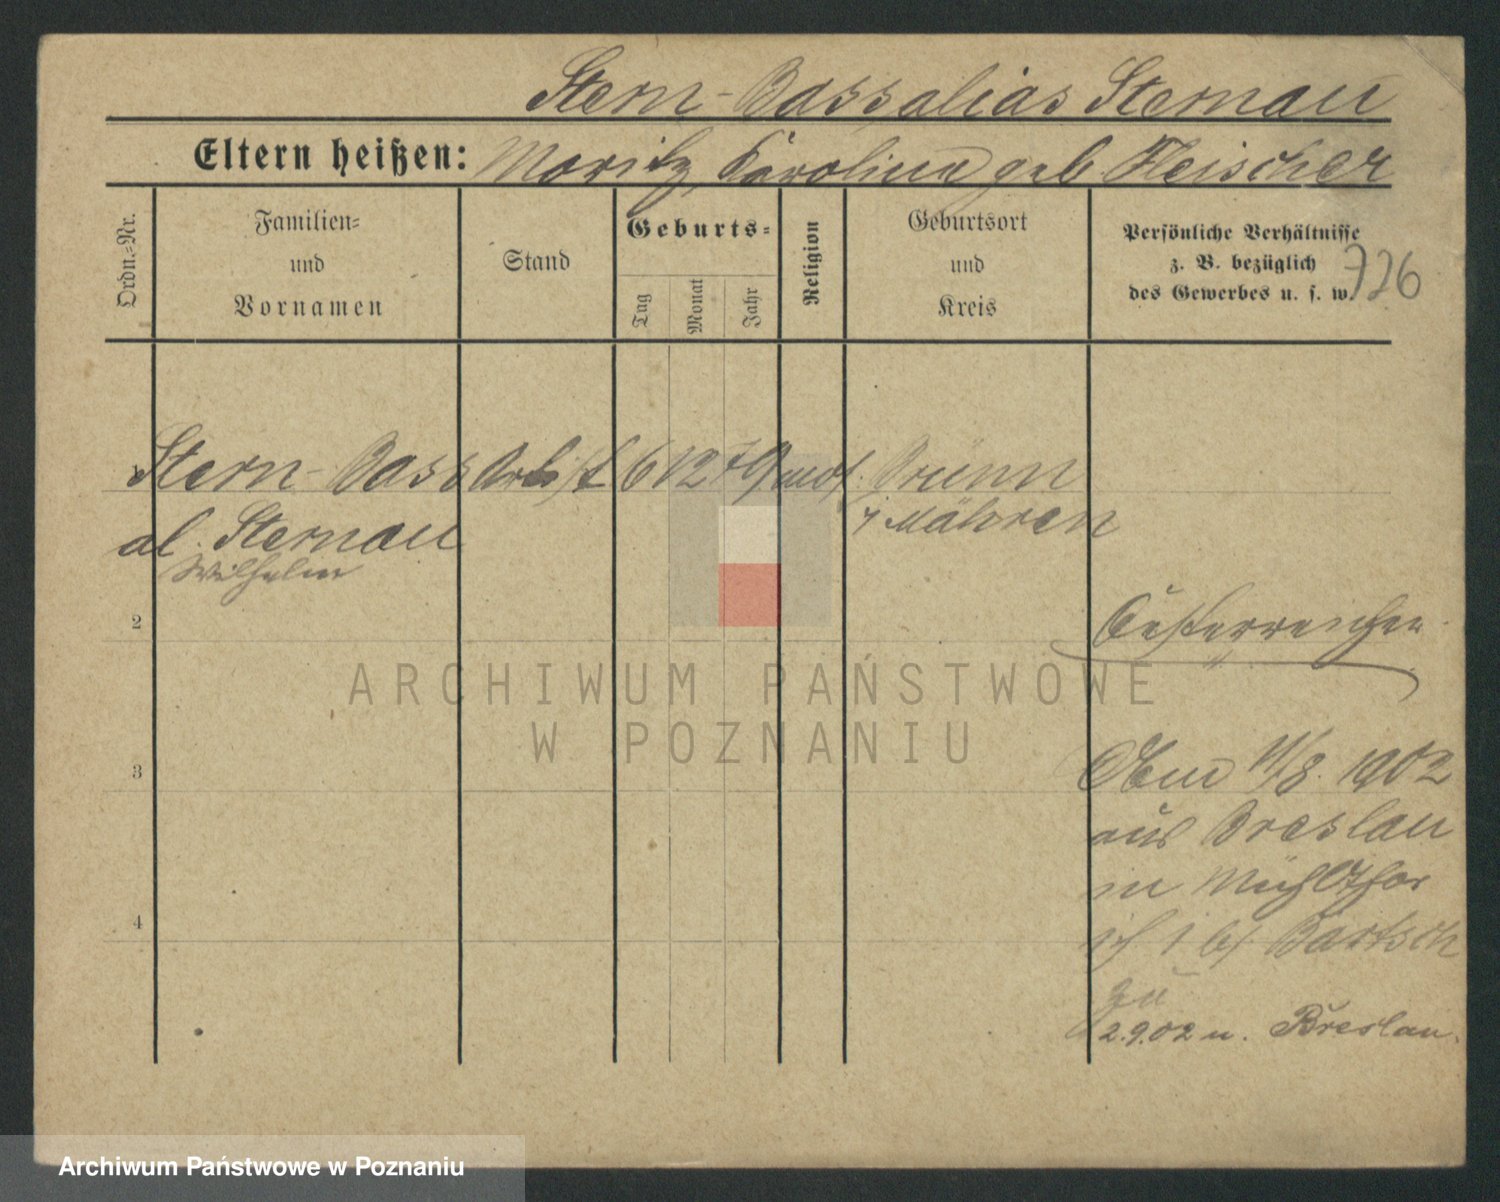 Stern-Bass alias Sternau
Eltern heißen: Moritz, Karolina geb. Fleischer
Ordn.-Nr.
Familien-
und
Vornamen
Stand
Geburts-
Tag
Monat
Jahr
Religion
Geburtsort
und
Kreis
Persönliche Verhältnisse
z. B. bezüglich
des Gewerbes u. s. w.
726
1 Stern-Bass Artist 6 12 79 mos. Brünn
al. Sternau i Mähren
Wilhelm
2
Oesterreicher
3
11/8. 1902
aus Breslau
in Mühlthor
bei Bartsch
zu
4
2.9.02 n. Breslau.
ARCHIWUM PAŃSTWOWE
W POZNANIU
Archiwum Państwowe w Poznaniu